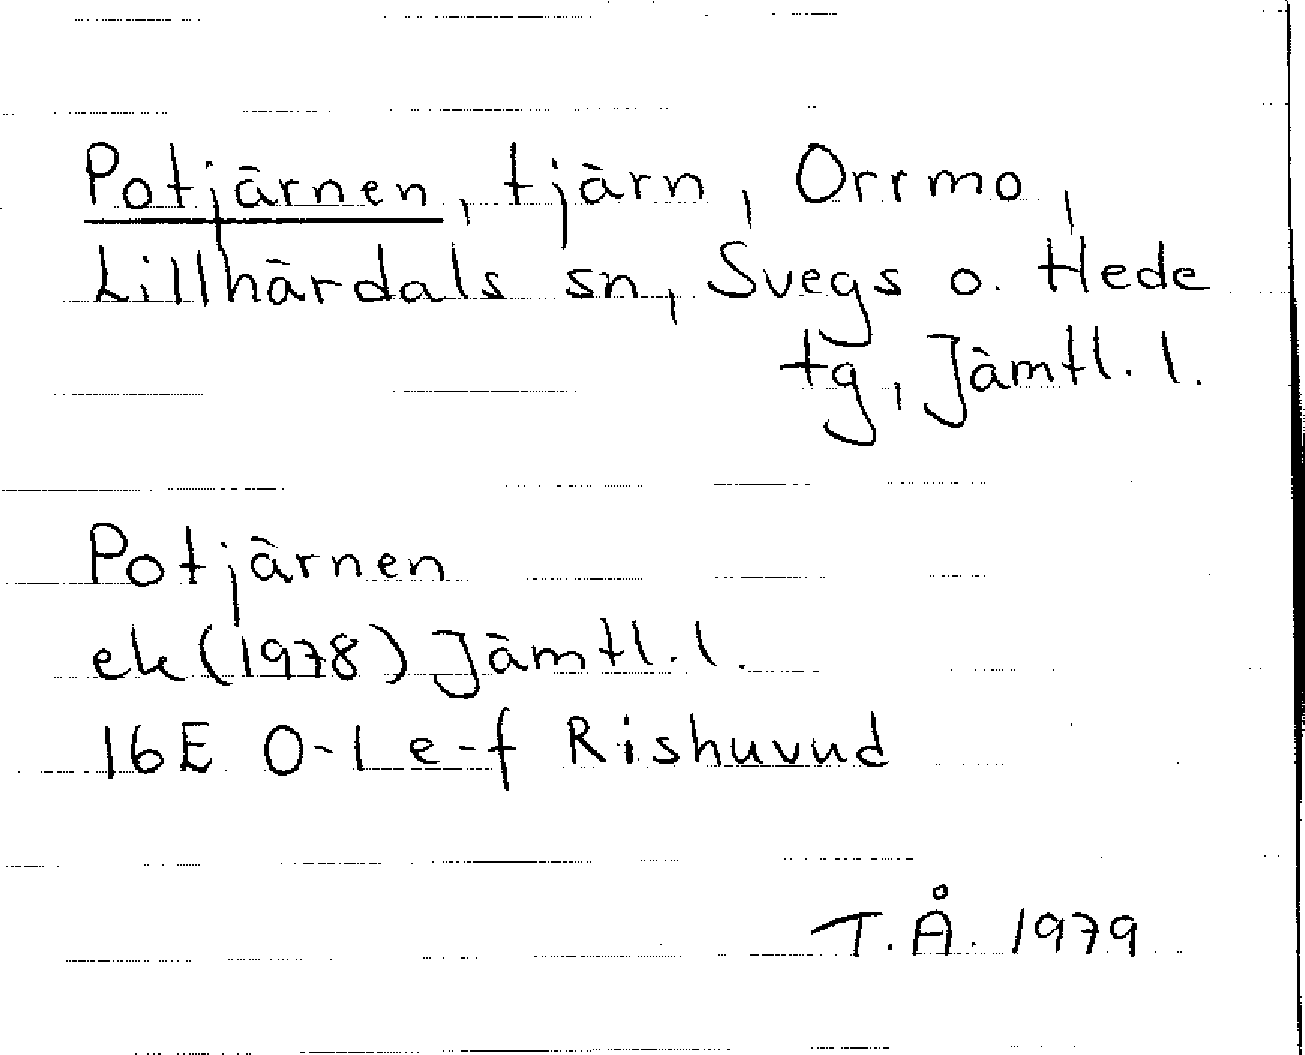 Potjärnen, tjärn, Orrmo,
Lillhärdals sn, Svegs o. Hede
tg, Jämtl. l.
Potjärnen
ek (1978) Jämtl. l.
16E 0-1 e-f Rishuvud
T.Å. 1979